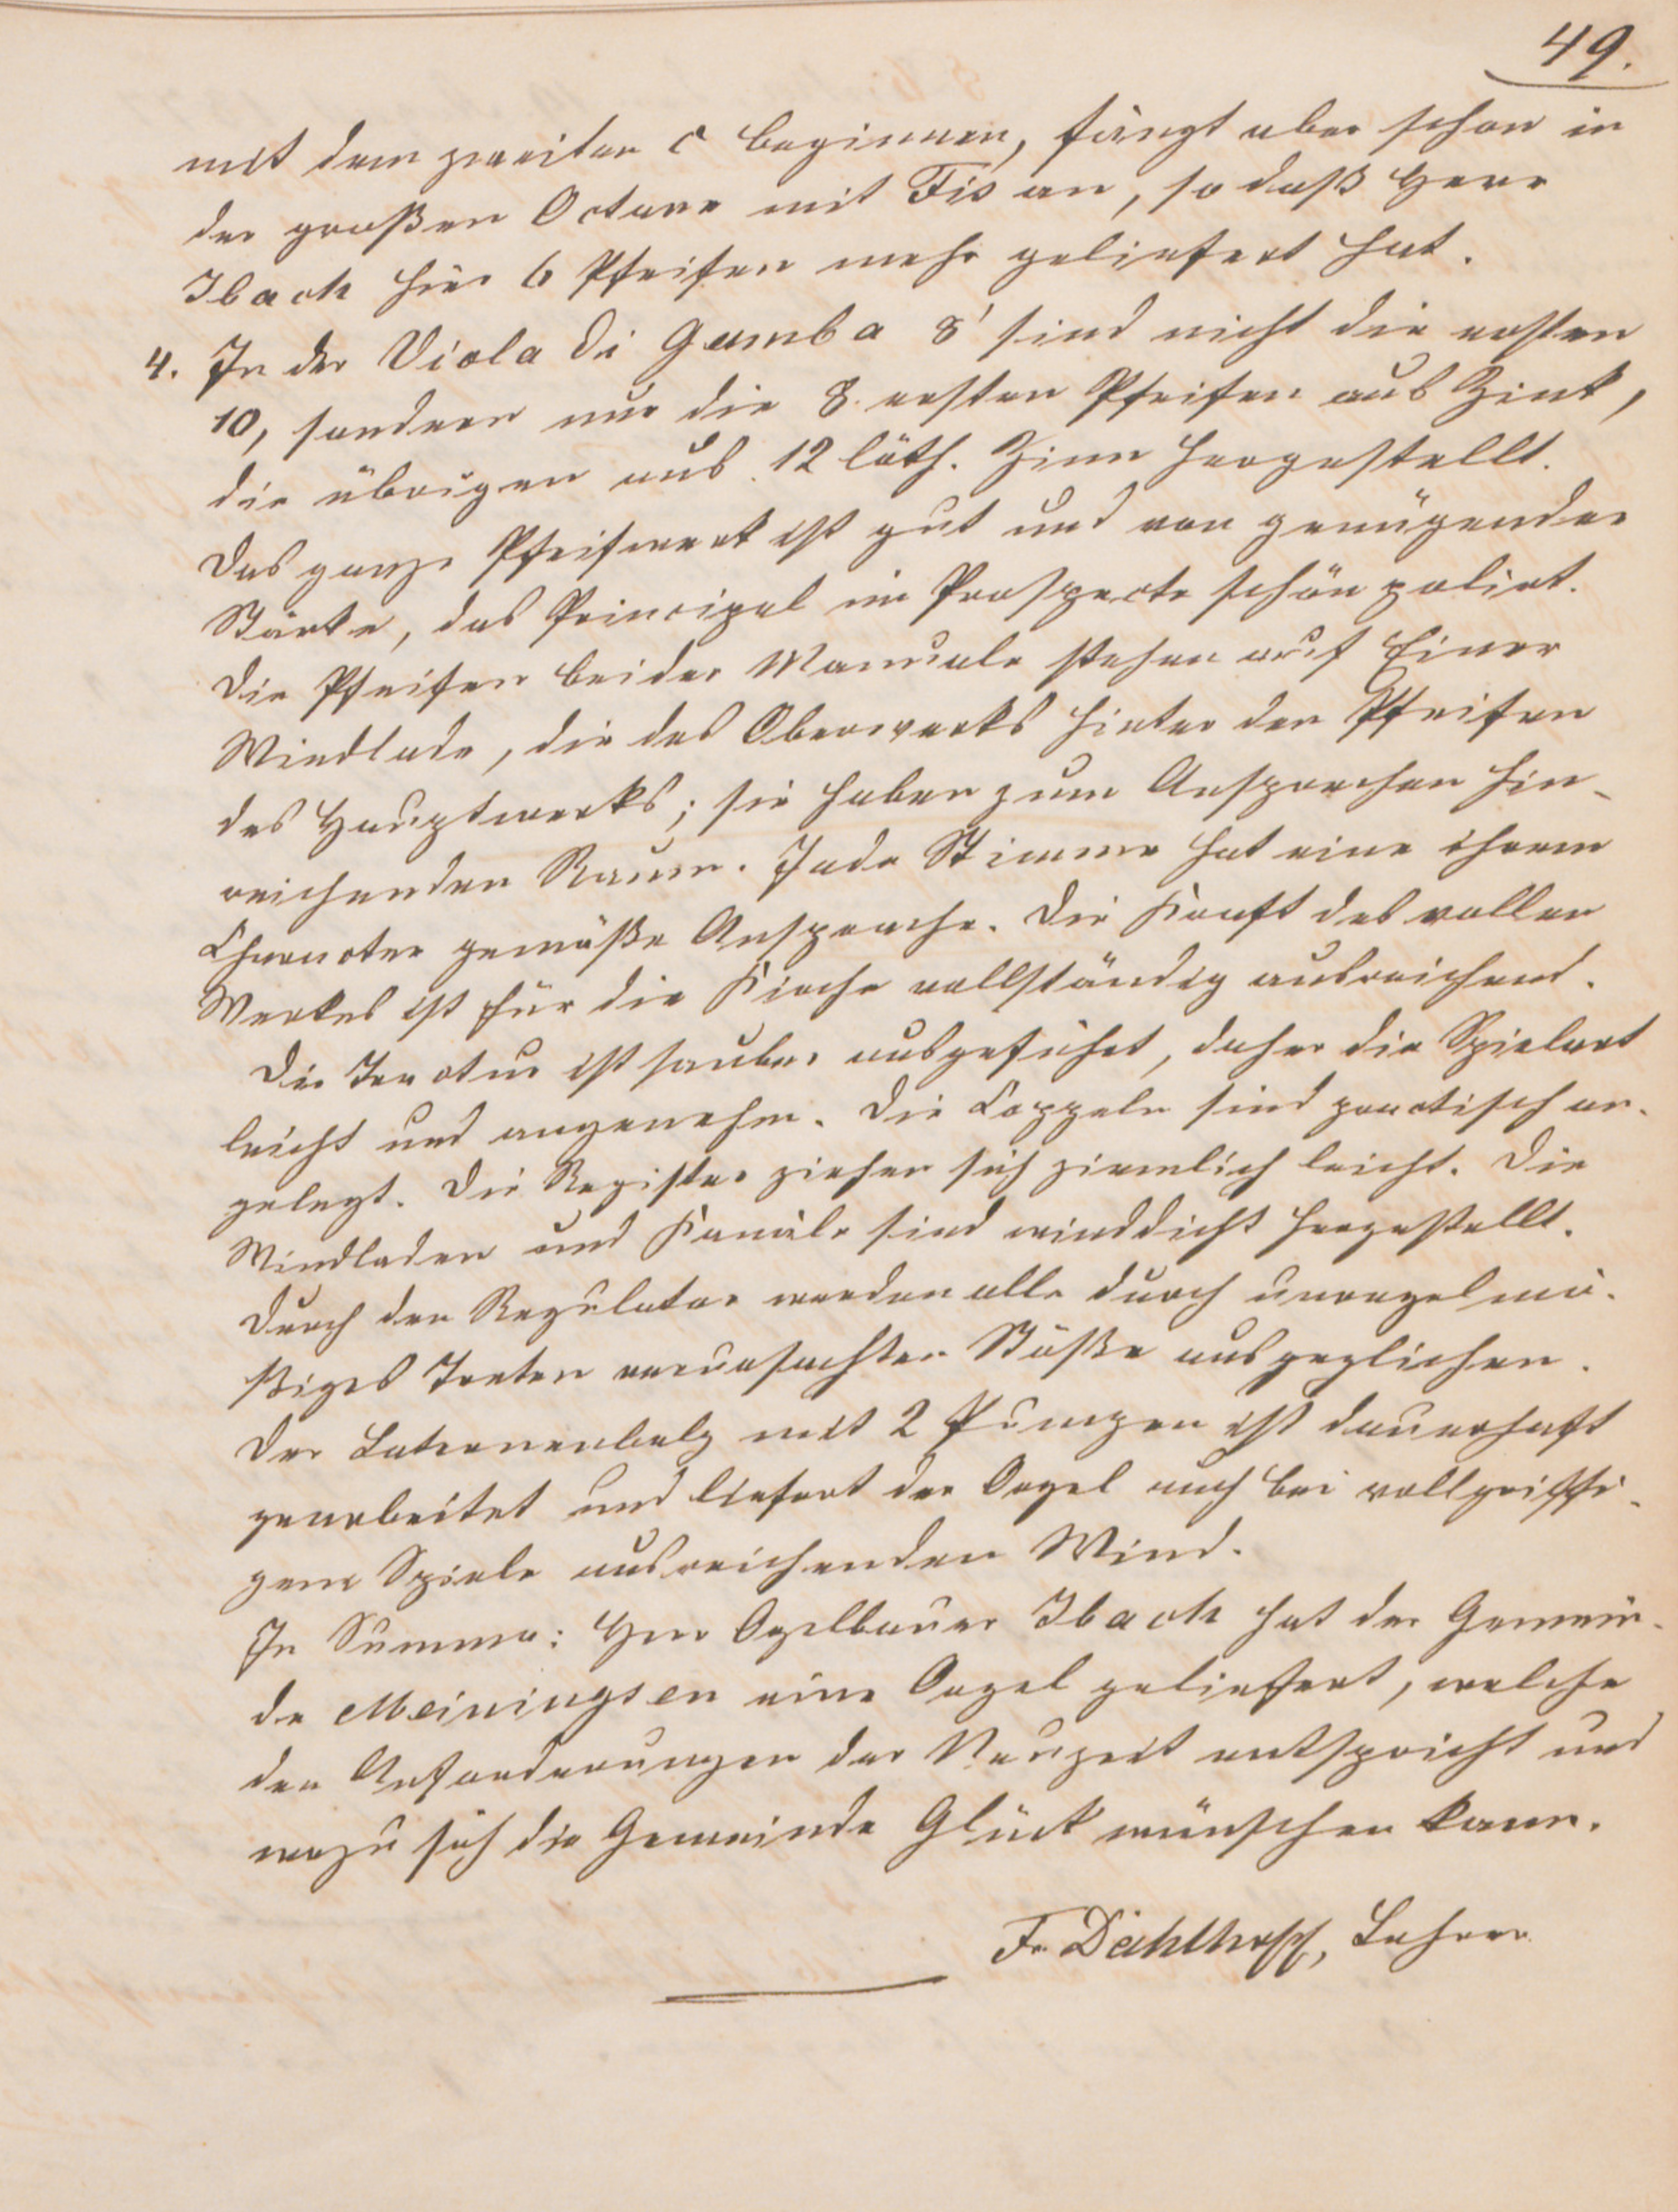 49.
mit dem zweiten c beginnen, fängt aber schon in
der großen Octave mit Fis an, so daß Herr
Ibach hier 6 Pfeifen mehr geliefert hat.
4. In der Viola di Gamba 8' sind nicht die ersten
10, sondern nur die 8 ersten Pfeifen aus Zink,
die übrigen aus 12 löth. Zinn hergestellt.
Das ganze Pfeifwerk ist gut und von genügender
Stärke, das Principal im Prospecte schön polirt.
Die Pfeifen beider Manuale stehen auf Einer
Windlade, die des Oberwerks hinter den Pfeifen
des Hauptwerks; sie haben zum Ansprechen hin-
reichenden Raum. Jede Stimme hat eine ihrem
Character gemäße Ansprache. Die Kraft des vollen
Werkes ist für die Kirche vollständig ausreichend.
Die Tractur ist sauber ausgeführt, daher die Spielart
leicht und angenehm. Die Coppeln sind practisch an-
gelegt. Die Register ziehen sich ziemlich leicht. Die
Windladen und Kanäle sind winddicht hergestellt.
Durch den Regulator werden alle durch unregelmä-
ßiges Treten verursachten Stöße ausgeglichen.
Der Laternenbalg mit 2 Pumpen ist dauerhaft
gearbeitet und liefert der Orgel auch bei vollgriffi-
gem Spiele ausreichenden Wind.
In Summa: Herr Ogelbauer Ibach hat der Gemein-
de Meiningsen eine Orgel geliefert, welche
den Anforderungen der Neuzeit entspricht und
wozu sich die Gemeinde Glück wünschen kann.
Fr. Dahlhoff, Lehrer